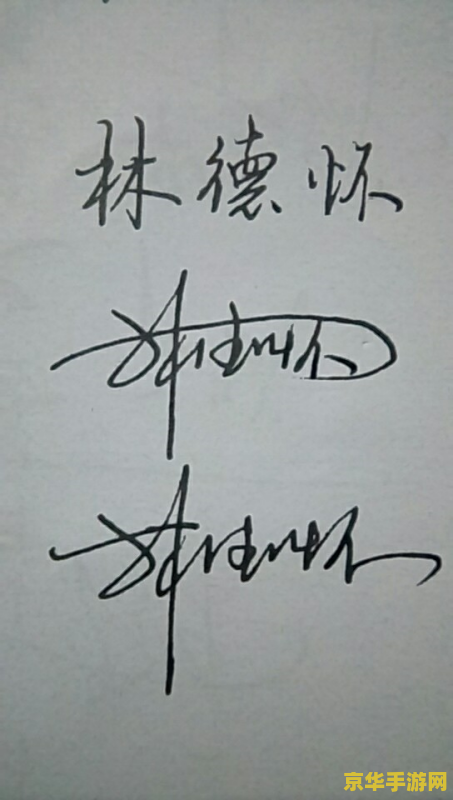 林德怀
林德怀
林德怀
京华手游网